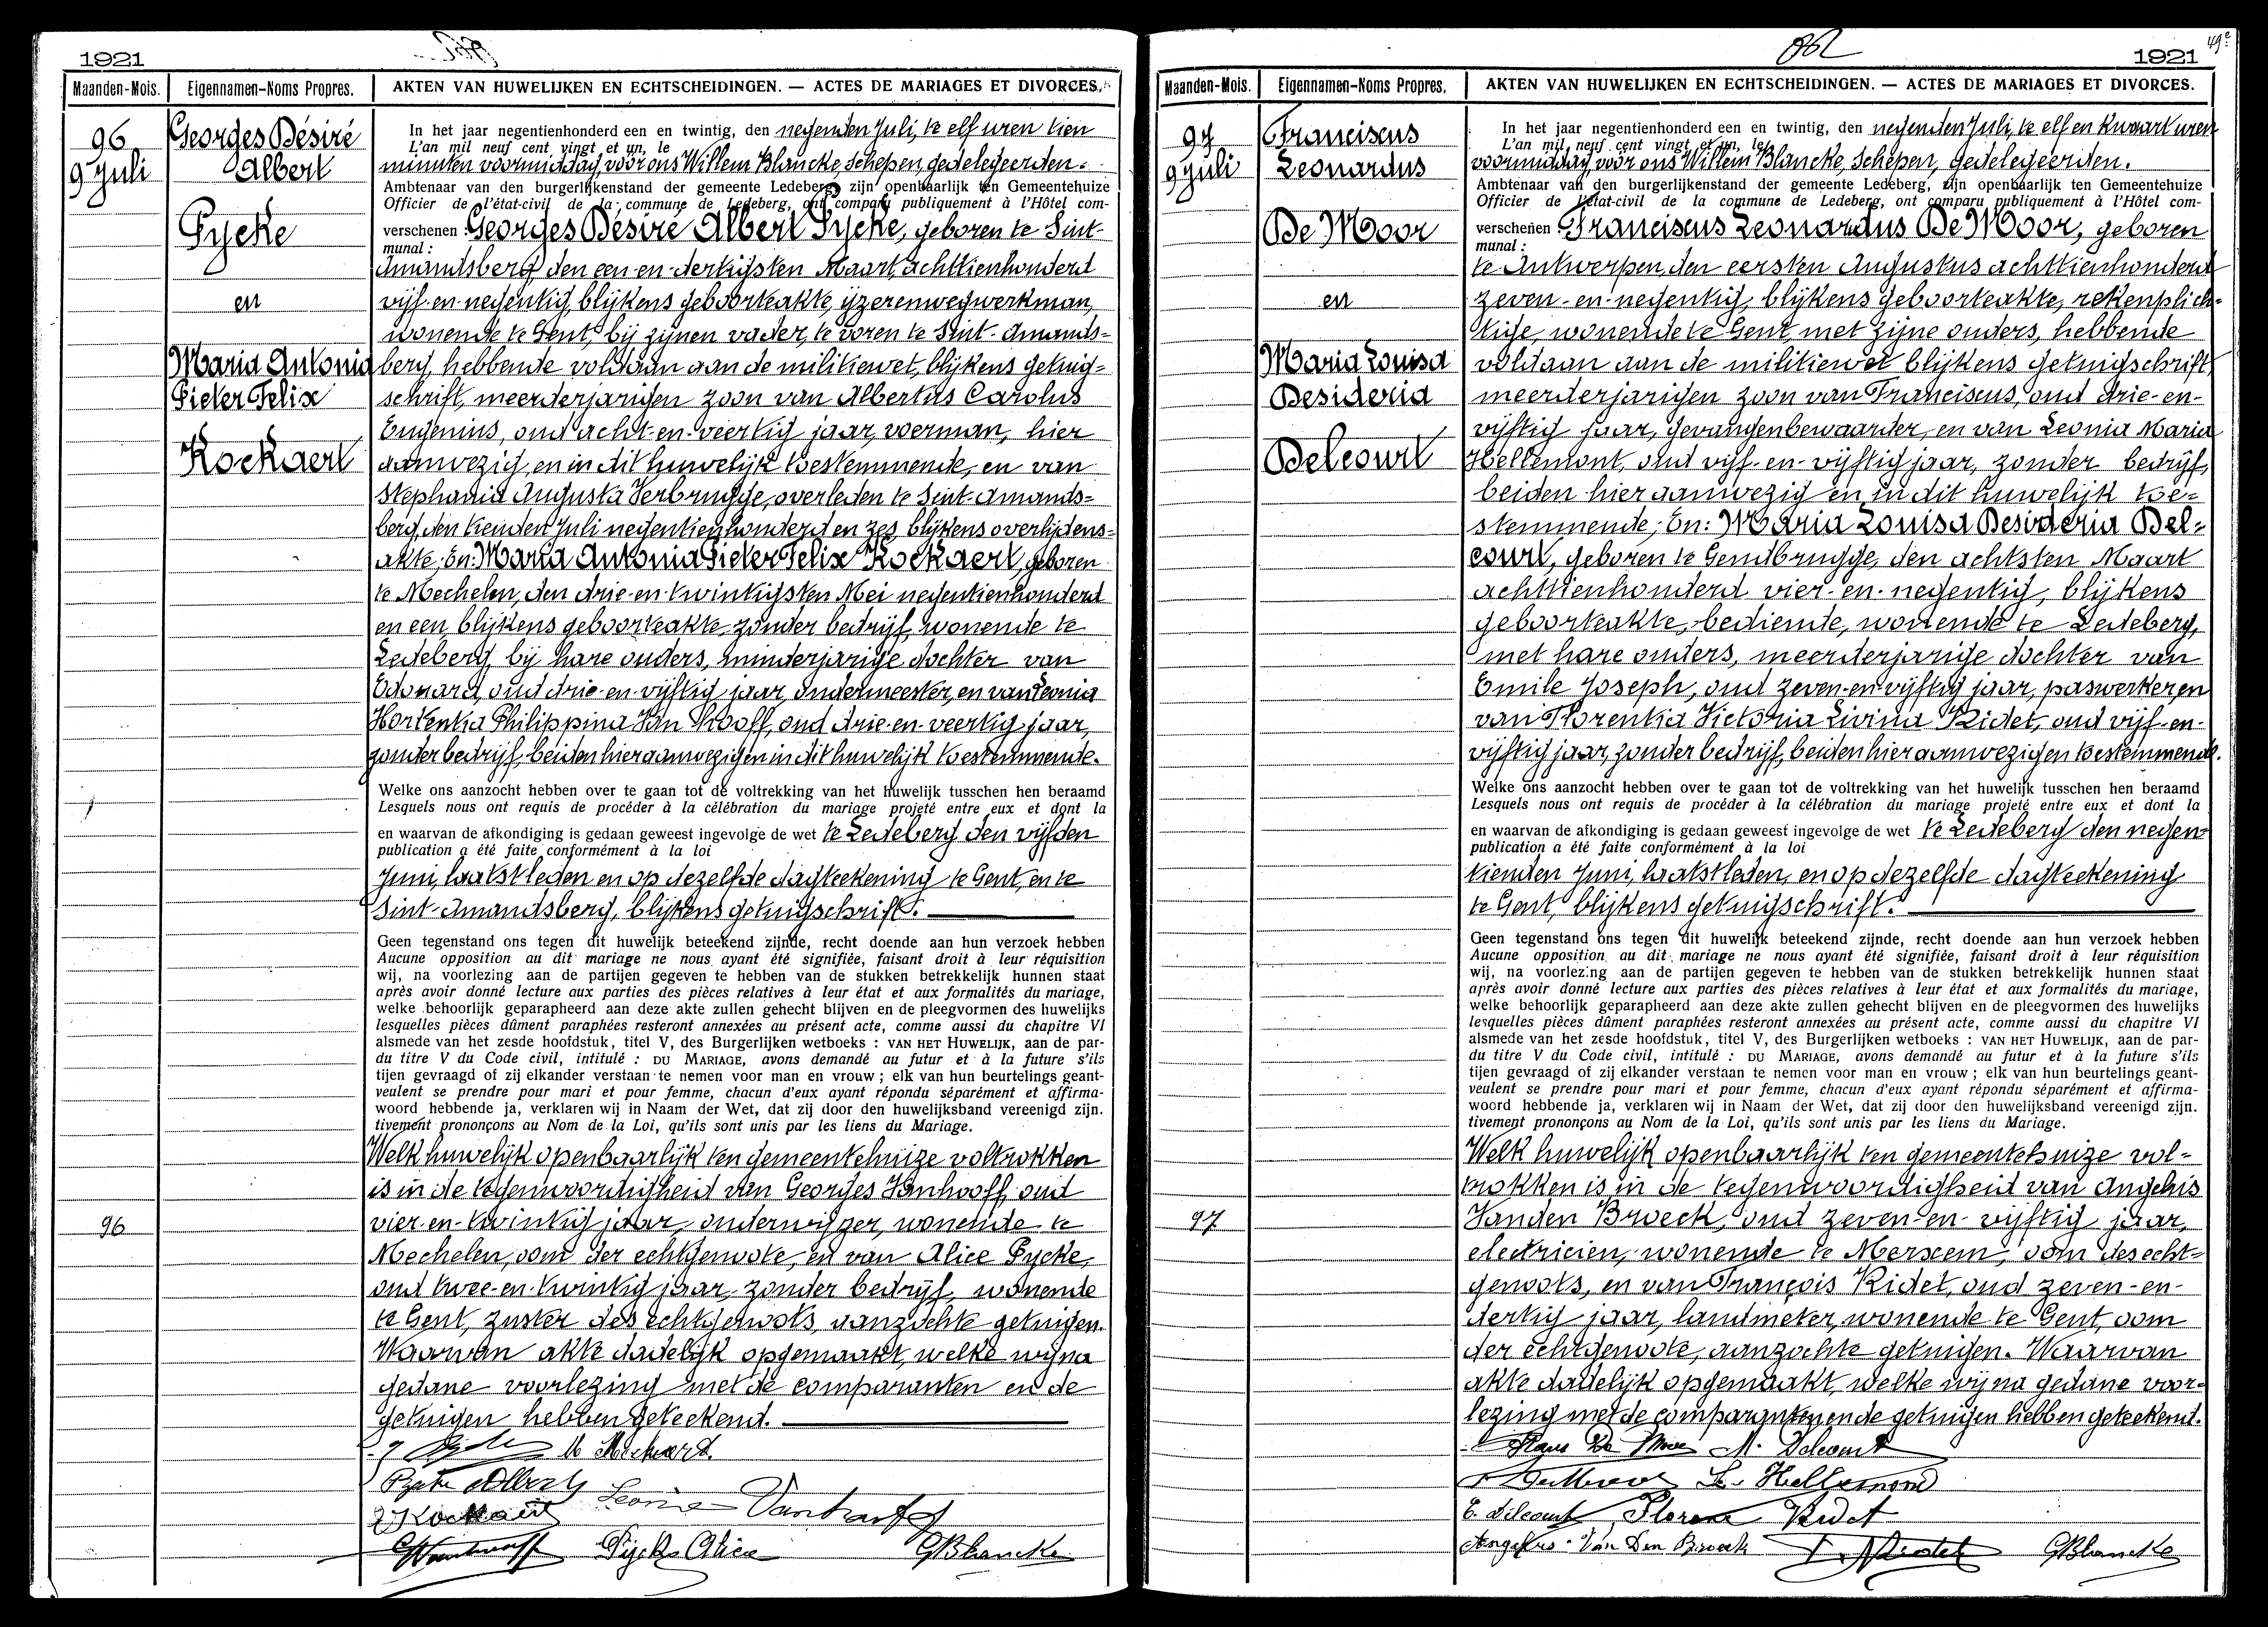 1921
Maanden-Mois.
Eigennamen-Noms Propres.
AKTEN VAN HUWELIJKEN EN ECHTSCHEIDINGEN. — ACTES DE MARIAGES ET DIVORCES.
96
9 Juli
Georges Désiré
Albert
Pycke
en
Maria Antonia
Pieter Felix
Kockaert
In het jaar negentienhonderd een en twintig, den negenden Juli, te elf uren tien
L'an mil neuf cent vingt et un, le
minuten voormiddag, voor ons Willem Blancke, schepen, gedelegeerden.
Ambtenaar van den burgerlijkenstand der gemeente Ledeberg, zijn openbaarlijk ten Gemeentehuize
Officier de l'état-civil de la commune de Ledeberg, ont comparu publiquement à l'Hôtel com-
verschenen : Georges Désiré Albert Pycke, geboren te Sint-
munal :
Amandsberg, den een-en-dertigsten Maart achttienhonderd
vijf-en-negentig, blijkens geboorteakte, ijzerenwegwerkman,
wonende te Gent, bij zijnen vader, te voren te Sint-Amands=
berg, hebbende voldaan aan de militiewet, blijkens getuig=
schrift, meerderjarigen zoon van Albertus Carolus
Eugenius, oud acht-en-veertig jaar, voerman, hier
aanwezig, en in dit huwelijk toestemmende, en van
Stephania Augusta Verbrugge, overleden te Sint-Amands=
berg, den tienden Juli negentienhonderd en zes blijkens overlijdens=
akte; En: Maria Antonia Pieter Felix Kockaert, geboren
te Mechelen, den drie-en-twintigsten Mei negentienhonderd
en een, blijkens geboorteakte, zonder bedrijf, wonende te
Ledeberg, bij hare ouders, minderjarige dochter van
Edouard, oud drie-en-vijftig jaar, ondermeester, en van Leonia
Hortentia Philippina Van Hooff, oud drie-en-veertig jaar,
zonder bedrijf, beiden hier aanwezig en in dit huwelijk toestemmende.
Welke ons aanzocht hebben over te gaan tot de voltrekking van het huwelijk tusschen hen beraamd
Lesquels nous ont requis de procéder à la célébration du mariage projeté entre eux et dont la
en waarvan de afkondiging is gedaan geweest ingevolge de wet te Ledeberg den vijfden
publication a été faite conformément à la loi
Juni, laatstleden en op dezelfde dagteekening te Gent, en te
Sint-Amandsberg, blijkens getuigschrift.
Geen tegenstand ons tegen dit huwelijk beteekend zijnde, recht doende aan hun verzoek hebben
Aucune opposition au dit mariage ne nous ayant été signifiée, faisant droit à leur réquisition
wij, na voorlezing aan de partijen gegeven te hebben van de stukken betrekkelijk hunnen staat
après avoir donné lecture aux parties des pièces relatives à leur état et aux formalités du mariage,
welke behoorlijk geparapheerd aan deze akte zullen gehecht blijven en de pleegvormen des huwelijks
lesquelles pièces dûment paraphées resteront annexées au présent acte, comme aussi du chapitre VI
alsmede van het zesde hoofdstuk, titel V, des Burgerlijken wetboeks : VAN HET HUWELIJK, aan de par-
du titre V du Code civil, intitulé : DU MARIAGE, avons demandé au futur et à la future s'ils
tijen gevraagd of zij elkander verstaan te nemen voor man en vrouw ; elk van hun beurtelings geant-
veulent se prendre pour mari et pour femme, chacun d'eux ayant répondu séparément et affirma-
woord hebbende ja, verklaren wij in Naam der Wet, dat zij door den huwelijksband vereenigd zijn.
tivement prononçons au Nom de la Loi, qu'ils sont unis par les liens du Mariage.
Welk huwelijk openbaarlijk ten gemeentehuize voltrokken
is in de tegenwoordigheid van Georges Vanhooff, oud
96
vier-en-twintig jaar, onderwijzer, wonende te
Mechelen, oom der echtgenoote, en van Alice Pycke,
oud twee-en-twintig jaar, zonder bedrijf, wonende
te Gent, zuster des echtgenoots, aanzochte getuigen.
Waarvan akte dadelijk opgemaakt, welke wij na
gedane voorlezing met de comparanten en de
getuigen hebben geteekend.
M Kockaert.
Pycke Albert Leonie Vanhooff
Kockaert
GVanhooff Pycke Alice GBlancke
1921
49e
Maanden-Mois.
Eigennamen-Noms Propres.
AKTEN VAN HUWELIJKEN EN ECHTSCHEIDINGEN. — ACTES DE MARIAGES ET DIVORCES.
97
9 Juli
Franciscus
Leonardus
De Moor
en
Maria Louisa
Desideria
Delcourt
In het jaar negentienhonderd een en twintig, den negenden Juli, te elf en kwart uren
L'an mil neuf cent vingt et un, le
voormiddag, voor ons Willem Blancke, schepen, gedelegeerden.
Ambtenaar van den burgerlijkenstand der gemeente Ledeberg, zijn openbaarlijk ten Gemeentehuize
Officier de l'état-civil de la commune de Ledeberg, ont comparu publiquement à l'Hôtel com-
verschenen : Franciscus Leonardus De Moor, geboren
munal :
te Antwerpen, den eersten Augustus achttienhonderd
zeven-en-negentig, blijkens geboorteakte, rekenplich=
tige, wonende te Gent, met zijne ouders, hebbende
voldaan aan de militiewet blijkens getuigschrift,
meerderjarigen zoon van Franciscus, oud drie-en-
vijftig jaar, gevangenbewaarder, en van Leonia Maria
Hellemont, oud vijf-en-vijftig jaar, zonder bedrijf,
beiden hier aanwezig en in dit huwelijk toe=
stemmende; En: Maria Louisa Desideria Del=
court, geboren te Gendbrugge, den achtsten Maart
achttienhonderd vier-en-negentig, blijkens
geboorteakte, bediende, wonende te Ledeberg,
met hare ouders, meerderjarige dochter van
Emile Joseph, oud zeven-en-vijftig jaar, paswerker, en
van Florentia Victoria Livina Ridet, oud vijf-en-
vijftig jaar, zonder bedrijf, beiden hier aanwezig en toestemmende.
Welke ons aanzocht hebben over te gaan tot de voltrekking van het huwelijk tusschen hen beraamd
Lesquels nous ont requis de procéder à la célébration du mariage projeté entre eux et dont la
en waarvan de afkondiging is gedaan geweest ingevolge de wet te Ledeberg den negen=
publication a été faite conformément à la loi
tienden Juni, laatstleden, en op dezelfde dagteekening
te Gent, blijkens getuigschrift.
Geen tegenstand ons tegen dit huwelijk beteekend zijnde, recht doende aan hun verzoek hebben
Aucune opposition au dit mariage ne nous ayant été signifiée, faisant droit à leur réquisition
wij, na voorlezing aan de partijen gegeven te hebben van de stukken betrekkelijk hunnen staat
après avoir donné lecture aux parties des pièces relatives à leur état et aux formalités du mariage,
welke behoorlijk geparapheerd aan deze akte zullen gehecht blijven en de pleegvormen des huwelijks
lesquelles pièces dûment paraphées resteront annexées au présent acte, comme aussi du chapitre VI
alsmede van het zesde hoofdstuk, titel V, des Burgerlijken wetboeks : VAN HET HUWELIJK, aan de par-
du titre V du Code civil, intitulé : DU MARIAGE, avons demandé au futur et à la future s'ils
tijen gevraagd of zij elkander verstaan te nemen voor man en vrouw ; elk van hun beurtelings geant-
veulent se prendre pour mari et pour femme, chacun d'eux ayant répondu séparément et affirma-
woord hebbende ja, verklaren wij in Naam der Wet, dat zij door den huwelijksband vereenigd zijn.
tivement prononçons au Nom de la Loi, qu'ils sont unis par les liens du Mariage.
Welk huwelijk openbaarlijk ten gemeentehuize vol=
trokken is in de tegenwoordigheid van Angelus
97
Vanden Broeck, oud zeven-en-vijftig jaar,
electricien, wonende te Merxem, oom des echt=
genoots, en van François Ridet, oud zeven-en-
dertig jaar, landmeter, wonende te Gent, oom
der echtgenoote, aanzochte getuigen. Waarvan
akte dadelijk opgemaakt, welke wij na gedane voor=
lezing met de comparanten en de getuigen hebben geteekend.
Frans De Moor M. Delcourt
L. Hellemont
E. Delcourt Florence Ridet
Angelus Van Den Broeck F. Ridet GBlancke